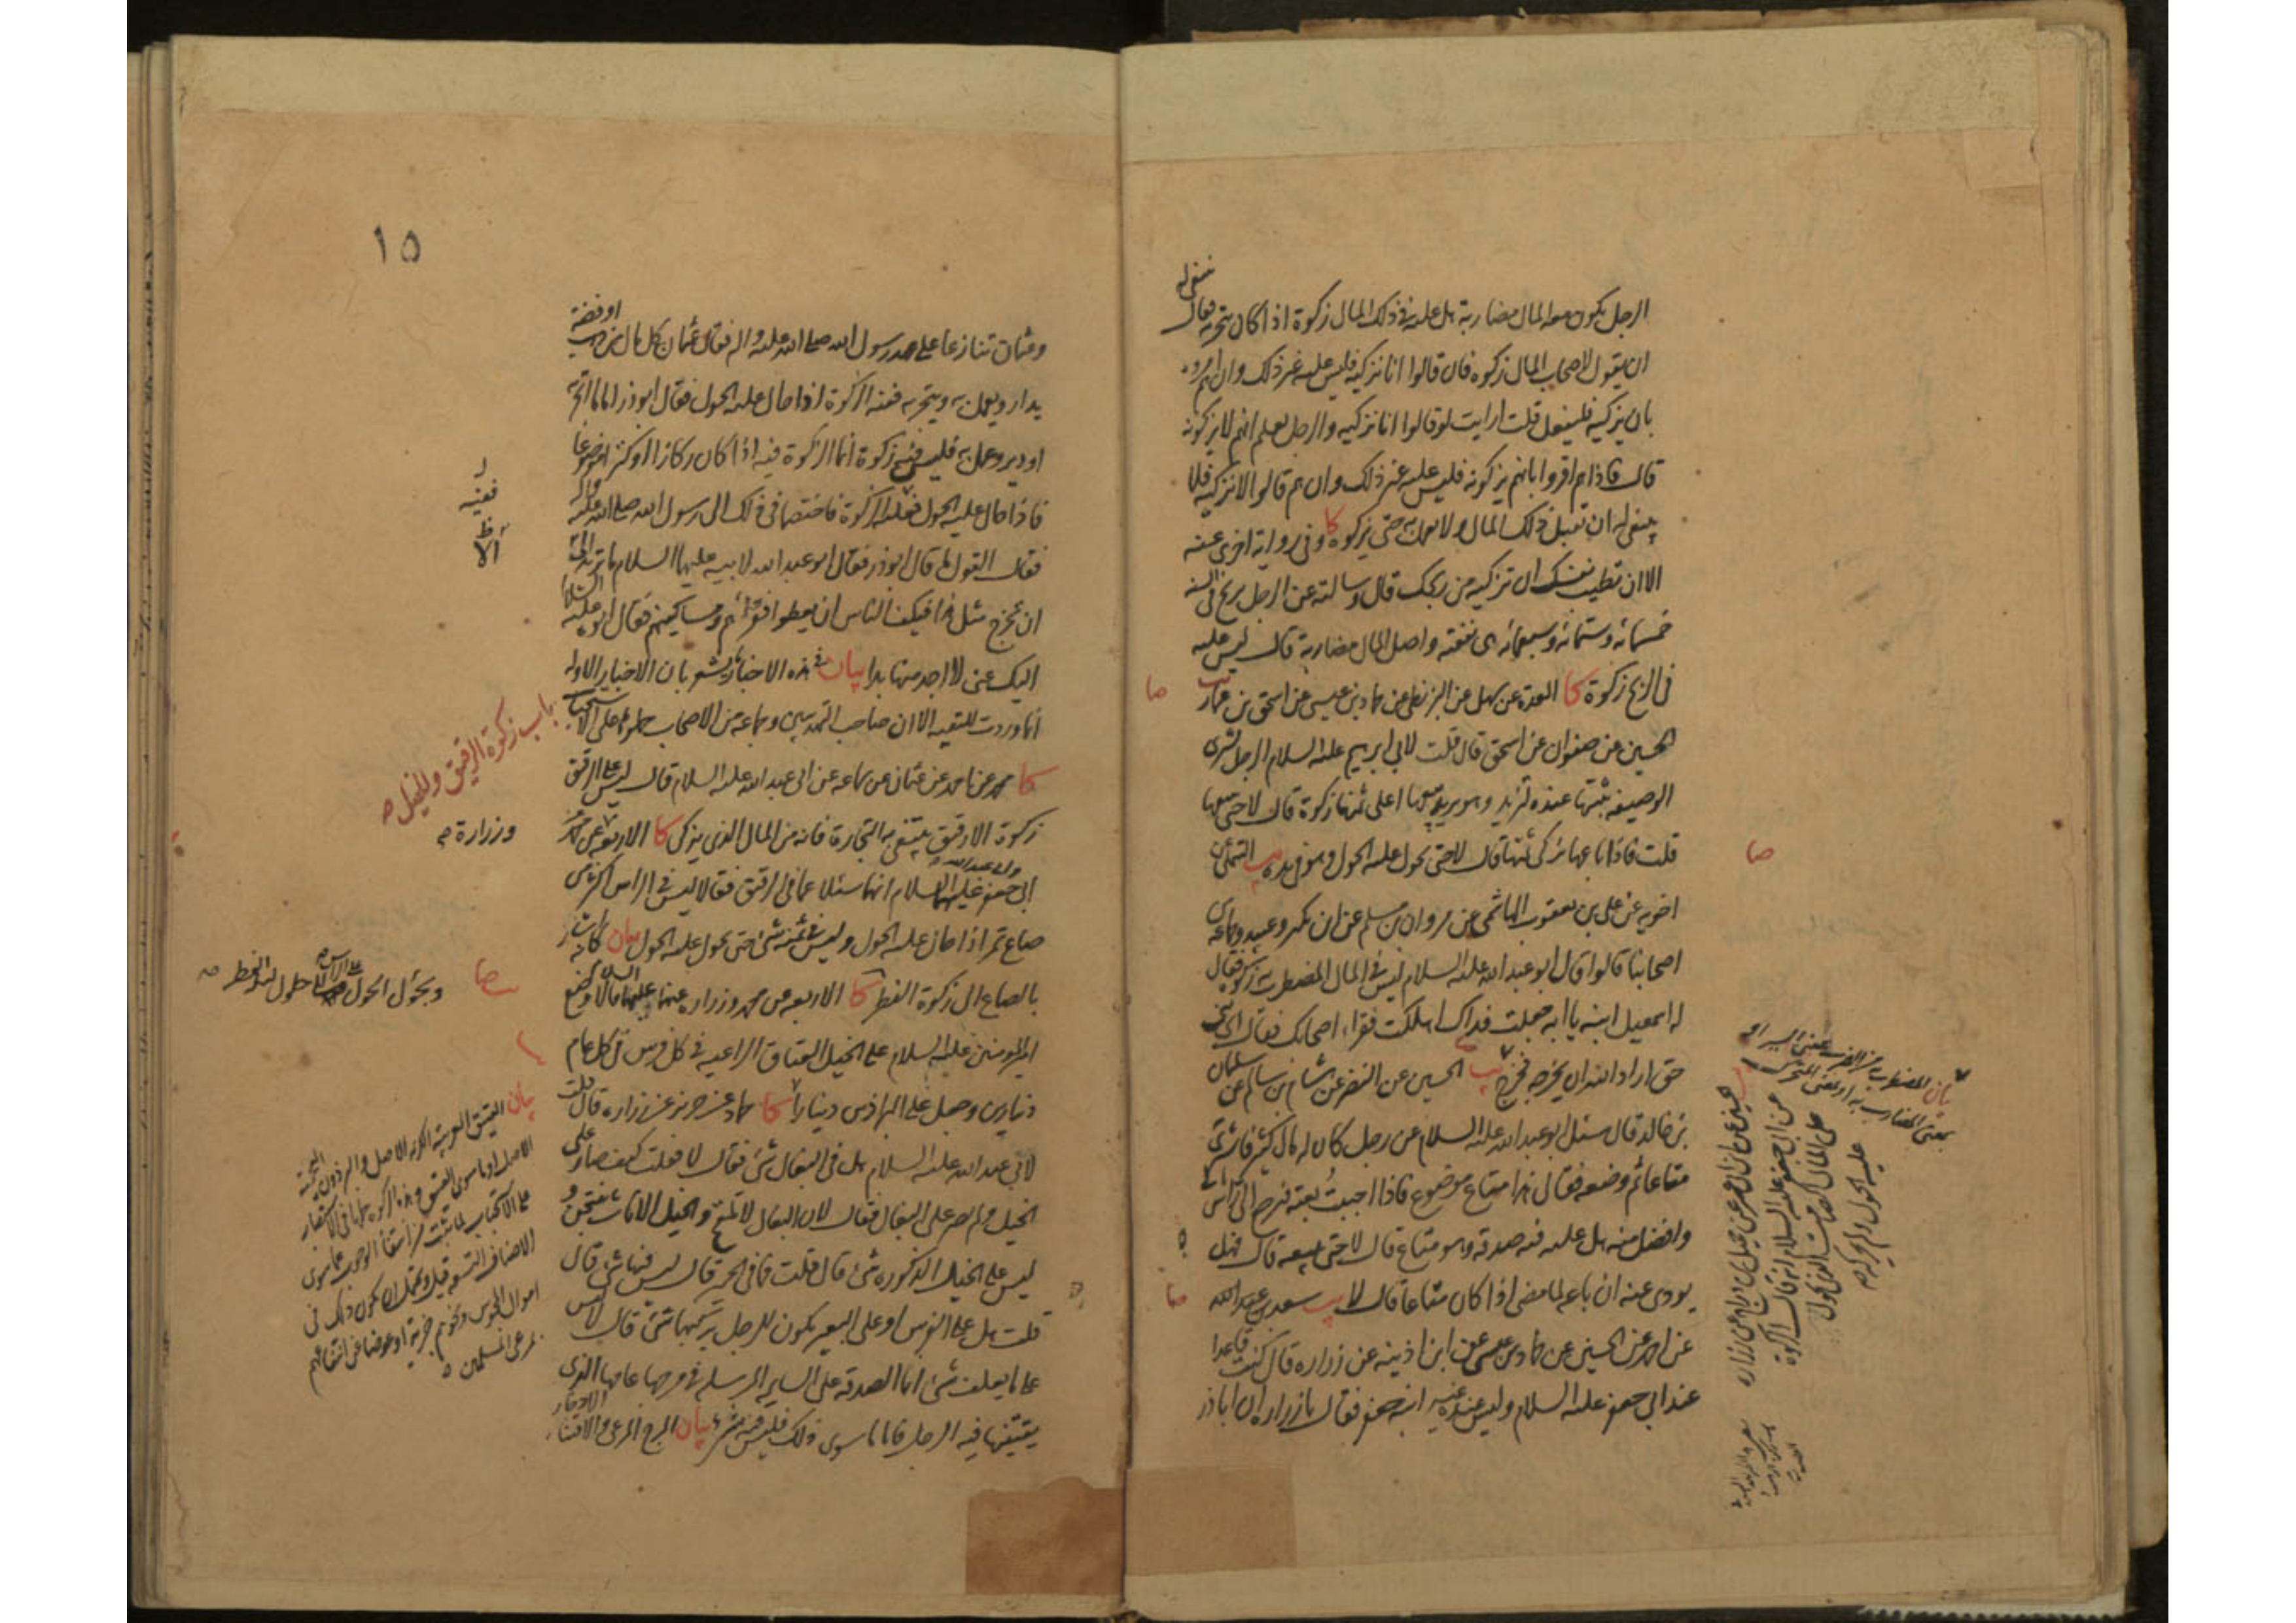 ينبغي له
الرجل يكون معه المال مضاربة هل عليه في ذلك المال زكوة اذا كان يتجر به فقال
ان يقول لاصحاب المال زكوه فان قالوا انا نزكيه فليس عليه غير ذلك وان هم امروه
بان يزكيه فليفعل قلت ارايت لو قالوا انا نزكيه والرجل يعلم انهم لا يزكونه
قال فاذا هم اقروا بانهم يزكونه فليس عليه غير ذلك وان هم قالوا لا نزكيه فلا
ينبغي له ان يقبل ذلك المال ولا يعمل به حتى يزكوه كا وفي رواية اخرى عنه
الا ان تطيب نفسك ان تزكيه من ربحك قال وسالته عن الرجل يربح في السنة
خمسمائة وستمائة وسبعمائة هي نفقته واصل المال مضاربة قال ليس عليه
في الربح زكوة كا العدة عن سهل عن البزنطي عن حماد بن عيسى عن اسحق بن عمار يب
صا
الحسين عن صفوان عن اسحق قال قلت لابي ابرهيم عليه السلام الرجل يشتري
الوصيفة يثبتها عنده لتزيد وهو يريد بيعها اعلى ثمنها زكوة قال لا حتى يبيعها
قلت فاذا باعها يزكي ثمنها قال لا حتى يحول عليه الحول وهو في يده يب التيملي عن
صا
اخويه عن علي بن يعقوب الهاشمي عن مروان بن مسلم عن ابن بكير وعبيد وجماعة من
اصحابنا قالوا قال ابو عبد الله عليه السلام ليس في المال المضطرب به زكوة فقال
له اسمعيل ابنه يا ابه جعلت فداك اهلكت فقراء اصحابك فقال اي بني
حق اراد الله ان يخرجه فخرج يب الحسين عن النضر عن هشام بن سالم عن سليمان
بن خالد قال سئل ابو عبد الله عليه السلام عن رجل كان له مال كثير فاشترى
متاعا ثم وضعه فقال هذا متاع موضوع فاذا احببت بعته فيرجع الي راس مالي
وافضل منه هل عليه فيه صدقة وهو متاع قال لا حتى يبيعه قال فهل
يودي عنه ان باعه لما مضى اذا كان متاعا قال لا يب سعد بن عبد الله
صا
عن احمد عن الحسين عن حماد بن عيسى عن ابن اذينة عن زرارة قال كنت قاعدا
عند ابي جعفر عليه السلام وليس عنده غير ابنه جعفر فقال يا زرارة ان اباذر
بيان المضطرب من الضرب بمعنى السير او
بمعنى المضارب به او بمعنى المتحرك
عن ابي جعفر عليه السلام انه قال الزكوة
على المال الصامت الذي يحول
عليه الحول ولم يحركه
١٥
او فضة
وعثمان تنازعا على عهد رسول الله صلى الله عليه واله فقال عثمان كل مال من ذهب
يدار ويعمل به ويتجر به ففيه الزكوة اذا حال عليه الحول فقال ابوذر اما ما اتجر به
او دير وعمل به فليس فيه زكوة انما الزكوة فيه اذا كان ركازا او كنزا موضوعا
فاذا حال عليه الحول فعليه الزكوة فاختصما في ذلك الى رسول الله صلى الله عليه واله
ففيه
فقال القول ما قال ابوذر فقال ابو عبد الله لابيه عليهما السلام ما تريد الى
الا
ان يخرج مثل هذا فيكف الناس ان يعطوا فقراءهم ومساكينهم فقال ابوه عليه السلام
اليك عني لا اجد منها بدا بيان في هذه الاخبار يشعر بان الاخبار الاوله
انما وردت للتقية الا ان صاحب التهذيبين وجماعة من الاصحاب حملوها على الاستحباب
باب زكوة الرقيق والخيل
كا محمد عن احمد عن عثمان عن سماعة عن ابي عبد الله عليه السلام قال ليس على الرقيق
زكوة الا رقيق يبتغى به التجارة فانه من المال الذي يزكى كا الاربعة عن محمد
وزرارة
ابي جعفر وابي عبد الله عليهما السلام انهما سئلا عما في الرقيق فقالا ليس في الراس اكثر من
صاع تمر اذا حال عليه الحول وليس في ثمنه شئ حتى يحول عليه الحول بيان كانه اشار
بالصاع الى زكوة الفطر كا الاربعة عن محمد وزرارة عنهما عليهما السلام قالا وضع
وبحول الحول على الراس الى حلول ليلة الفطر
صا
امير المومنين عليه السلام على الخيل العتاق الراعية في كل فرس في كل عام
دينارين وجعل على البراذين دينارا كا حماد عن حريز عن زرارة قال قلت
لابي عبد الله عليه السلام هل في البغال شئ فقال لا فقلت كيف صار على
الخيل ولم يصر على البغال فقال لان البغال لا تلقح والخيل الاناث ينتجن و
ليس على الخيل الذكورة شئ قال قلت فما في الحمير قال ليس فيها شئ قال
قلت هل على الفرس او على البعير يكون للرجل يركبهما شئ قال لا ليس
على ما يعلف شئ انما الصدقة على السايمة المرسلة في مرجها عامها الذي
يقتنيها فيه الرجل فاما ما سوى ذلك فليس فيه شئ بيان المرج المرعى والاقتناء الادخار
بيان العتيق العربية الكريمة الاصل والبرذون الهجينة
الاصل او ما سوى العتيق وهذه الزكوة حملها في الاستبصار
على الاستحباب لما ثبت من انتفاء الوجوب عما سوى
الاصناف التسعة قيل ويحتمل ان يكون ذلك في
اموال المجوس ونحوهم جزية او عوضا عن انتفاعهم
بمرعى المسلمين